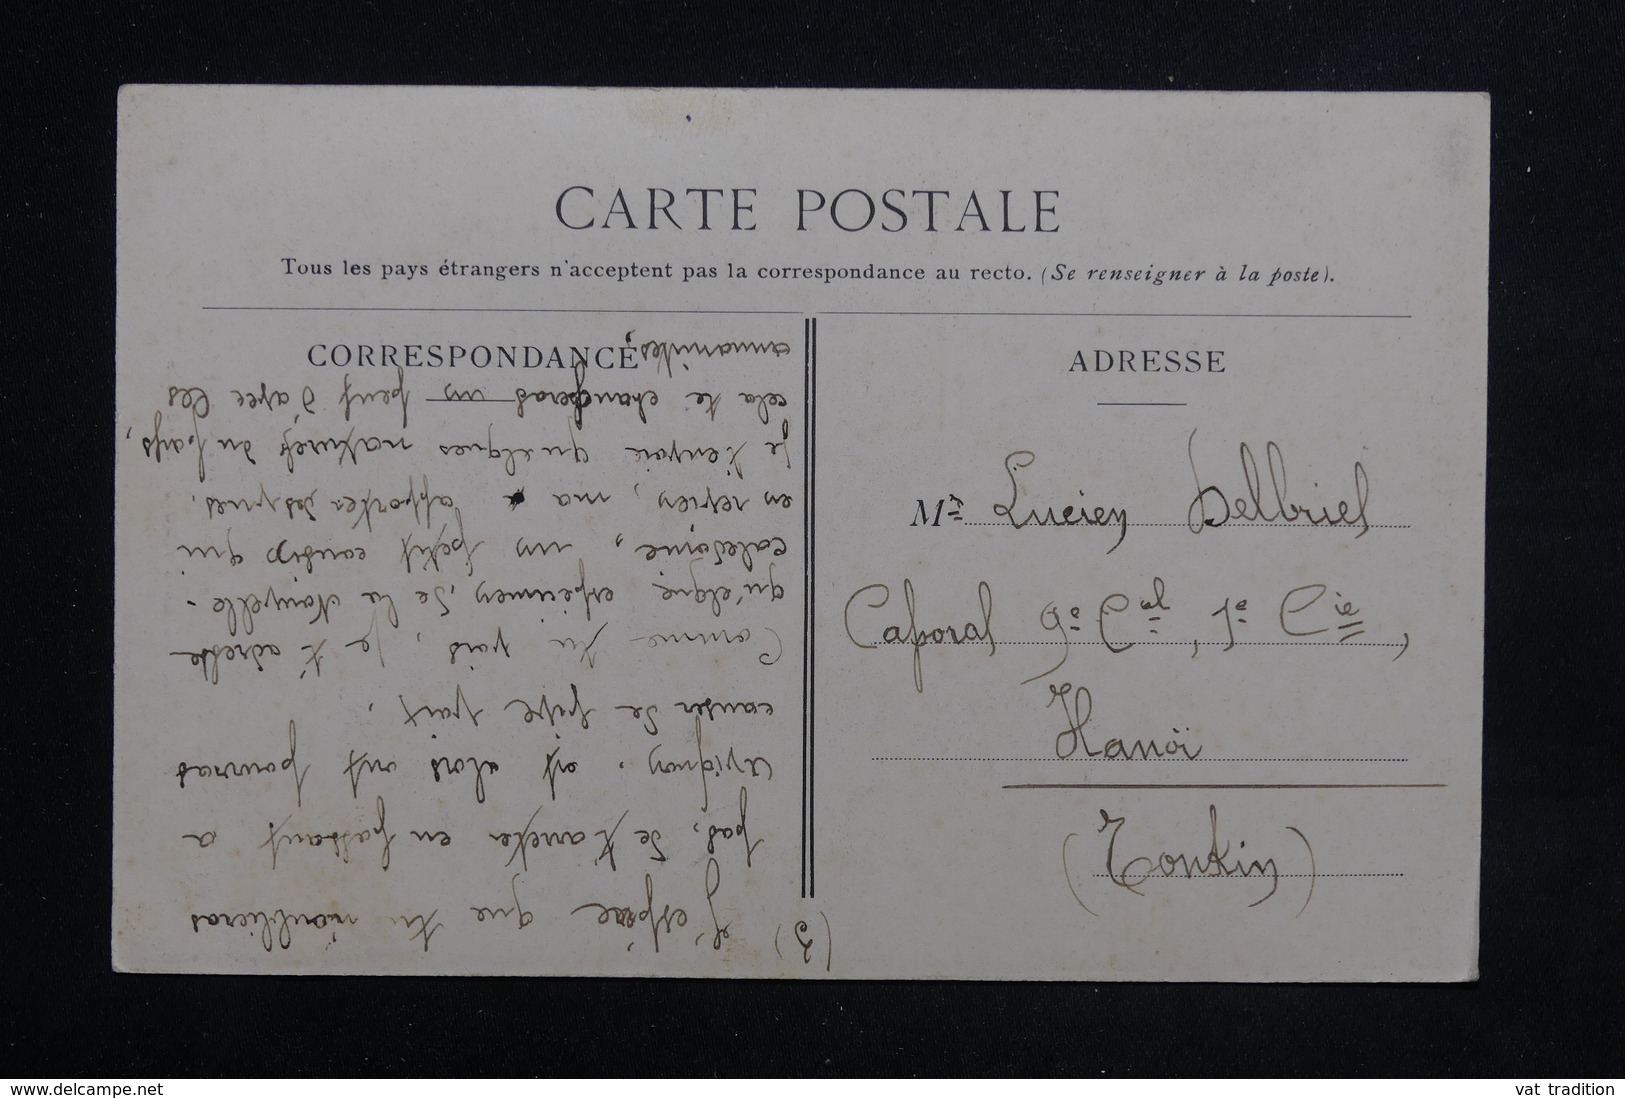 CARTE POSTALE
Tous les pays étrangers n'acceptent pas la correspondance au recto. (Se renseigner à la poste).
CORRESPONDANCE
(3)
J'espère que tu n'oublieras
pas, de t'arreter en passant a
Avignon. et alors ont pourras
causer de vive voix.
Comme tu vois, je t'adresse
qu'elque espécimen, de la Nouvelle-
caledonie, un petit cousin qui
en revien, ma apporter des vues.
Je t'envoie quelques natures du pays,
cela te changeras un peut d'avec les
annamites,
ADRESSE
Mr Lucien Delbriel
Caporal 9e Cal, 1e Cie,
Hanoï
(Tonkin)
www.delcampe.net
vat tradition